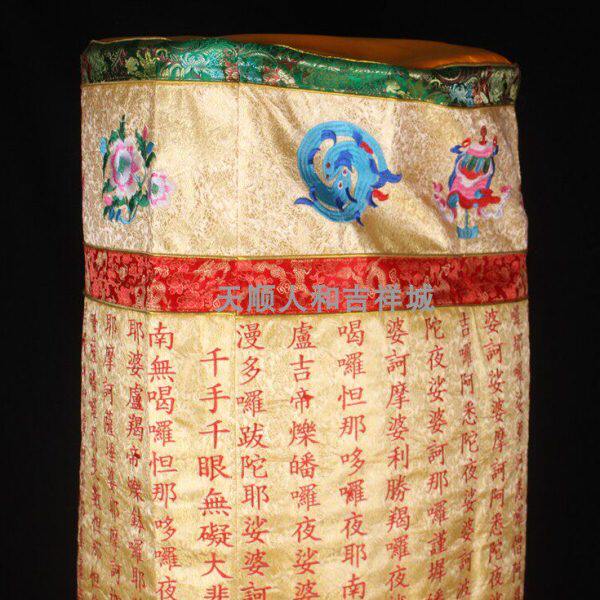 天顺人和吉祥城
婆訶摩訶阿悉陀夜
吉囉阿悉陀夜娑婆
陀夜娑婆訶那囉謹墀皤
婆訶摩婆利勝羯囉夜
喝囉怛那哆囉夜耶南
盧吉帝爍皤囉夜娑婆
漫多囉跋陀耶娑婆訶
千手千眼無礙大悲
南無喝囉怛那哆囉夜
耶婆盧羯帝爍鉢囉耶
耶摩訶薩埵婆耶摩訶